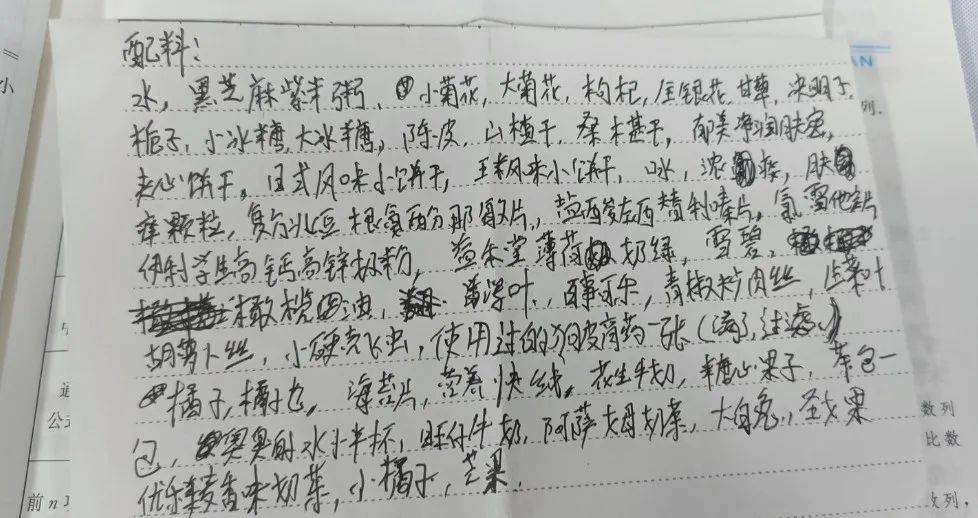 配料:
水,黑芝麻紫米粥、小菊花,大菊花,枸杞,金银花,甘草,决明子,
栀子,小冰糖,大冰糖,陈皮,山楂干,桑木甚干,郁美净润肤蜜,
夹心饼干,日式风味小饼干,玉米风味小饼干,口水,浓接,肤
痒颗粒,复方北豆根氨酚那敏片,盐酸左西替利嗪片,氯雷他定片
伊利学生高钙高锌奶粉,益禾堂薄荷奶绿,雪碧,
橄榄油,薄荷叶,百事可乐,青椒炒肉丝,生菜叶
胡萝卜丝,小硬壳飞虫,使用过的狗皮膏药一张(滴了,过滤)
橘子,橘子皮,海苔片,营养快线,花生牛奶,糖心果子,茶包一
包,臭臭的水小半杯,旺仔牛奶,阿萨姆奶茶,大白兔,圣女果
优乐美麦香味奶茶,小橘子,芒果,
小
AN
列.
通
公式
前n项
数列
比数
数列,